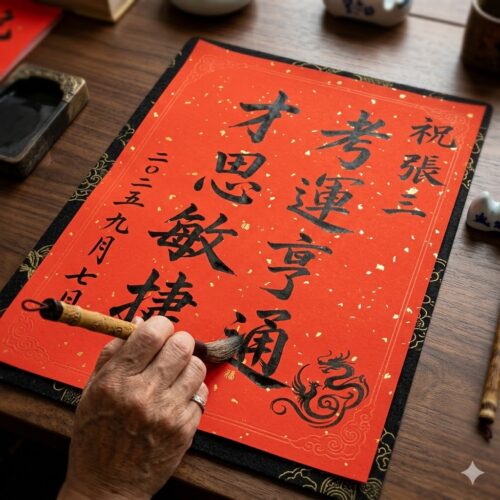 祝張三
考運亨通
才思敏捷
二〇二五九月七日
福
福